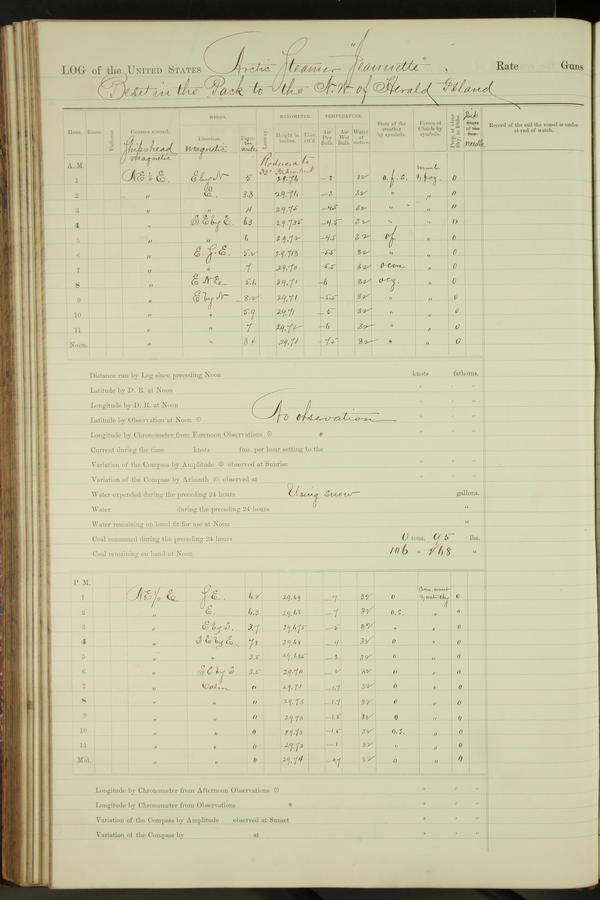 LOG of the UNITED STATES Arctic Steamer "Jeannette". Rate Guns
Beset in the Pack to the N. W. of Herald Island
WINDS. BAROMETER. TEMPERATURE.
Hour. Knots. Fathoms. Courses steered. Direction. Force. Leeway. Height in inches. Ther. att'd. Air Dry Bulb. Air Wet Bulb. Water at surface. State of the weather by symbols. Forms of Clouds by symbols. Prop. of clear sky, in 10ths. Record of the sail the vessel is under at end of watch.
Ship's head magnetic magnetic in miles needle
A. M. Reduced to 32° Fahrenheit
1 NE½E E by N 5 29.76 -3 32 0
2 " E. 3.8 29.76 -3 32 " " 0
3 " " 4 29.75 -4.5 32 " " 0
4 " SE by E. 6.3 29.735 -4.5 32 " " 0
5 " " 6 29.72 -4.5 32 of " 0
6 " 5.2 29.713 -5.5 32 " " 0
7 " " 7 29.70 -5.5 32 ocm " 0
8 " E NE 5.6 29.71 -6 32 ocg. " 0
9 " E by N 8.2 29.71 -5.5 32 " " 0
10 " " 5.9 29.71 -5 32 " " 0
11 " " 7 29.72 -6 32 " " 0
Noon. " " 29.71 -7.5 32 " " 0
Distance run by Log since preceding Noon knots fathoms.
Latitude by D. R. at Noon ° ′ ″
Longitude by D. R. at Noon ° ′ ″
Latitude by Observation at Noon ☉ No observation ° ′ ″
Longitude by Chronometer from Forenoon Observations ☉ * ° ′ ″
Current during the time knots fms. per hour setting to the
Variation of the Compass by Amplitude ☉ observed at Sunrise ° ′ ″
Variation of the Compass by Azimuth ☉ observed at ° ′ ″
Water expended during the preceding 24 hours Using snow gallons.
Water during the preceding 24 hours "
Water remaining on hand fit for use at Noon "
Coal consumed during the preceding 24 hours 0 tons. 95 lbs.
Coal remaining on hand at Noon 106 " 268 "
P. M.
1 NE½E 6.2 29.69 -7 32 0 0
2 " E. 6.3 29.65 -7 32 o.s. " 0
3 " E by S. 3.7 29.675 -5 32 " " 0
4 " SE by E. 7.3 29.68 -4 32 0 " 0
5 " " 3.5 29.685 -3 32 0 " 0
6 " SE by S 3.5 29.70 -2 32 0 " 0
7 " Calm 0 29.71 -1.7 32 0 " 0
8 " " 0 29.73 -1.7 32 0 " 0
9 " " 0 29.73 -1.5 32 0 " 0
10 " " 0 29.73 -1.5 32 o.s. " 0
11 " " 0 29.73 -1 32 " " 0
Mid. " " 0 29.74 32 0 " 0
Longitude by Chronometer from Afternoon Observations ☉ ° ′ ″
Longitude by Chronometer from Observations * ° ′ ″
Variation of the Compass by Amplitude observed at Sunset ° ′ ″
Variation of the Compass by at ° ′ ″